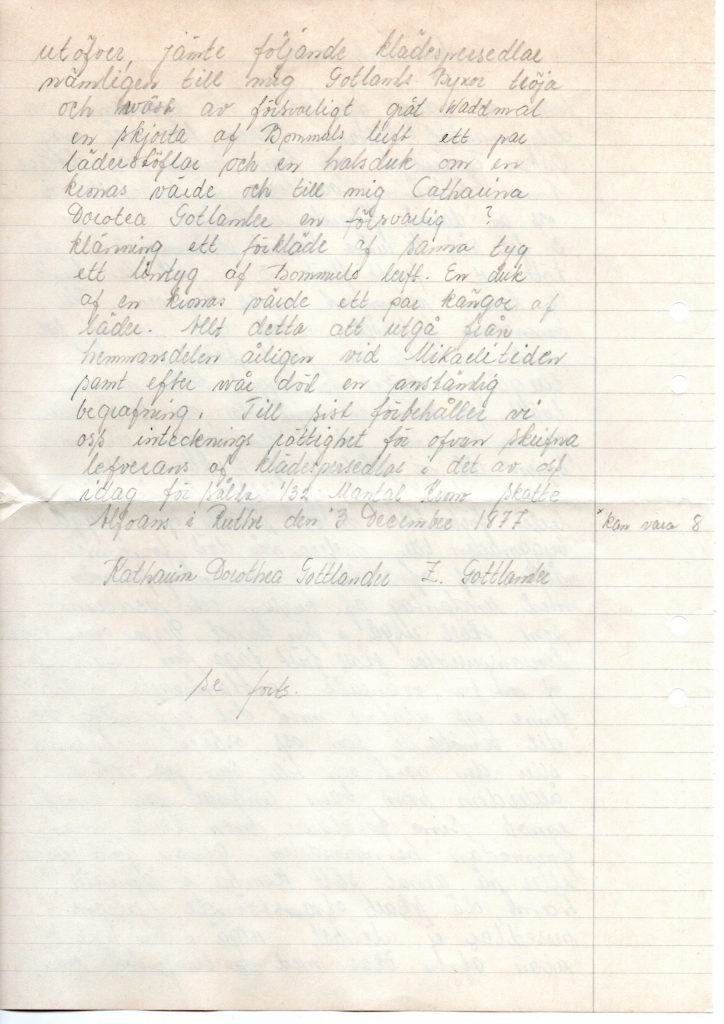 utöfver, jämte följande klädespersedlar
nämligen till mig Gotlands Byxor tröja
och wäst av försvarligt gråt waddmal
en skjorta af Bommuls lerft ett par
läderstöflar och en halsduk om en
kronas värde och till mig Catharina
Dorotea Gotlander en försvarlig ?
klänning ett förkläde af samma tyg
ett lintyg af Bommuls lerft. En duk
af en kronas värde ett par kängor af
läder. Allt detta att utgå från
hemmansdelen årligen vid Mikaelitiden
samt efter wår död en anständig
begrafning. Till sist förbehåller vi
oss intecknings rättighet för ofvan skrifna
lefverans af klädespersedlar i det av oss
idag för sålda 1/32 Mantal Krono skatte
Alfvans i Ruthe den *3 December 1877 * kan vara 8
Katharina Dorothea Gottlander Z. Gottlander
se forts.